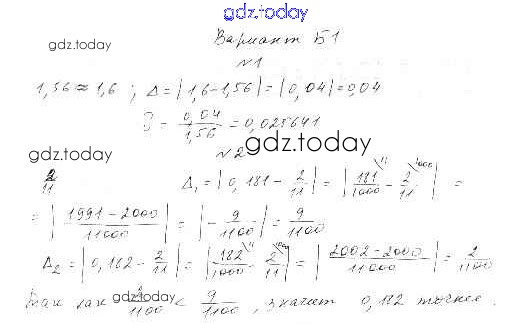 gdz.today
Вариант Б1
gdz.today
№1
1,56 ≈ 1,6 ; Δ = |1,6-1,56| = |0,04| = 0,04
= 0,04/1,56 = 0,025641
gdz.today
gdz.today
№2
2/11 Δ₁ = |0,181 - 2/11| = |181/1000 - 2/11| =
= |1991-2000/11000| = |-9/1100| = 9/1100
Δ₂ = |0,182 - 2/11| = |182/1000 - 2/11| = |2002-2000/11000| = 2/1100
gdz.today
Так как /1100 < 9/1100, значит 0,182 точнее.